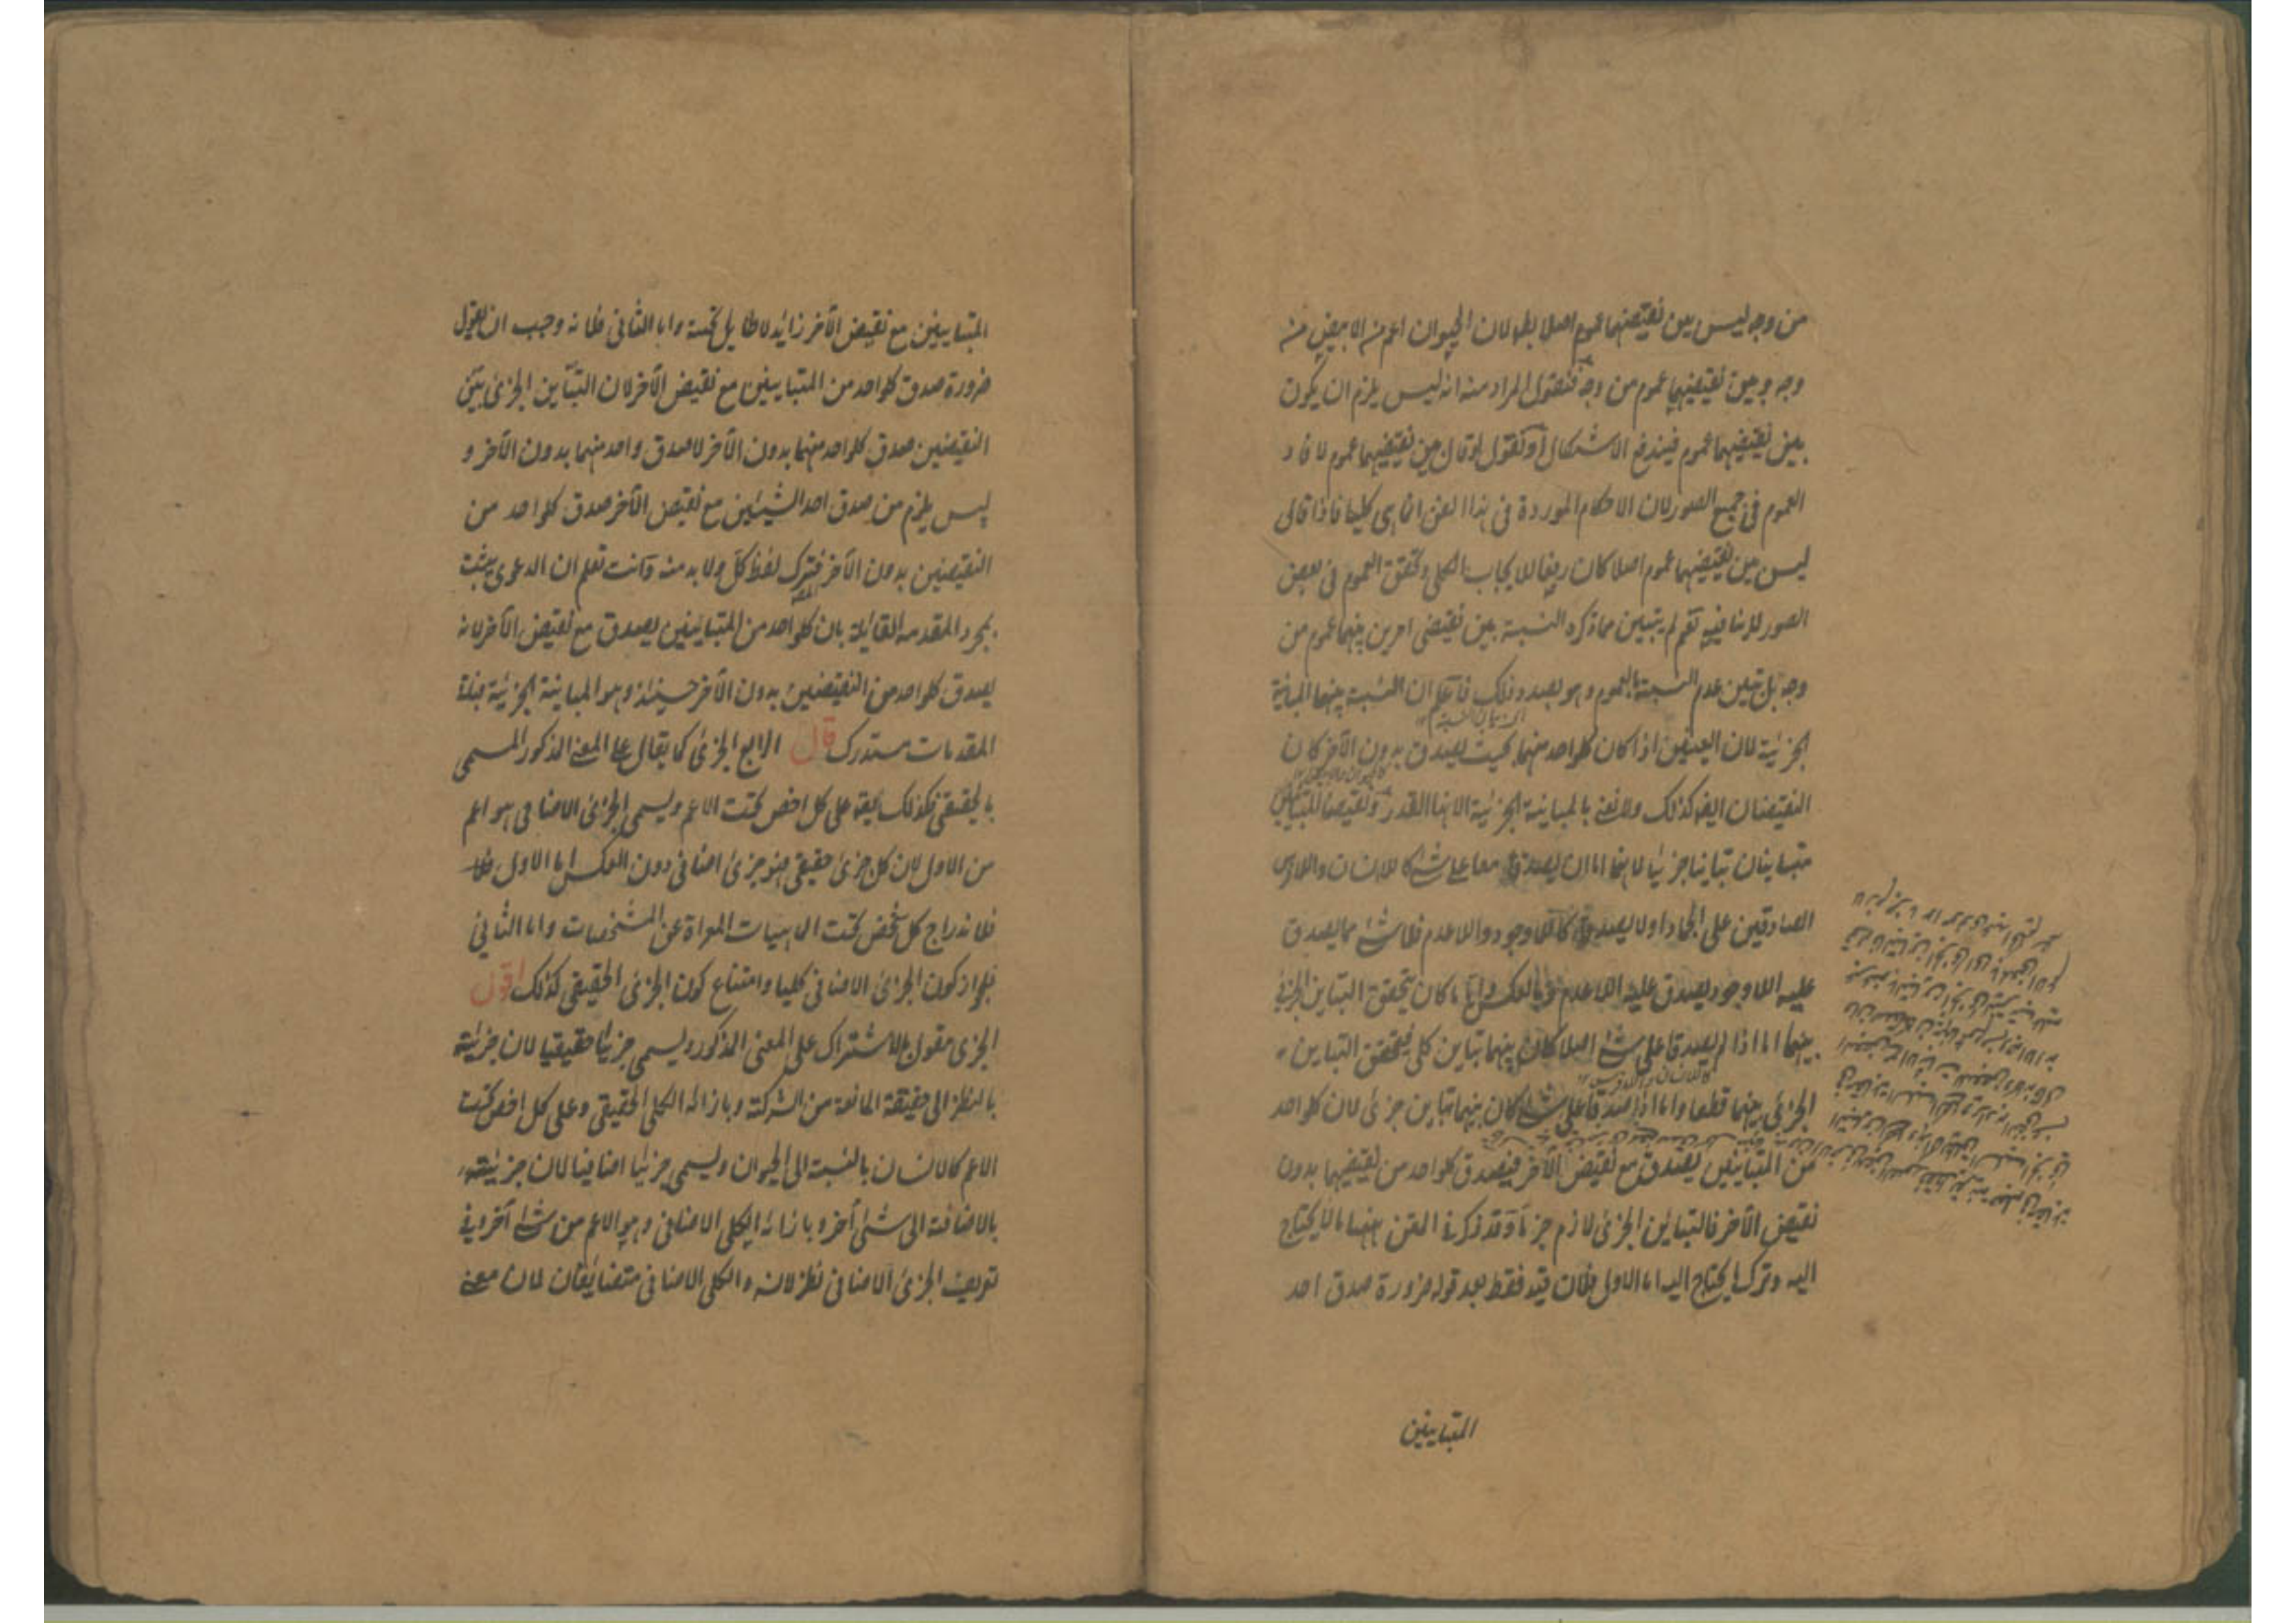 من وجه ليس بين نقيضهما عموم اصلا بطو لان الحيوان اعم من الابيض من
وجه وبين نقيضيهما عموم من وجه فنقول المراد منه انه ليس يلزم ان يكون
بين نقيضيهما عموم فيندفع الاشكال او نقول لو قال بين نقيضيهما عموم لافاد
العموم في جميع الصور لان الاحكام الموردة في هذا الفن انما هي كليات فاذا قال
ليس بين نقيضيهما عموم اصلا كان رفعا للايجاب الكلي وتحقق العموم في بعض
الصور لا ينافيه نعم لم يتبين مما ذكره النسبة بين نقيضي امرين بينهما عموم من
وجه بل تبين عدم النسبة بالعموم وهو بصدد ذلك فاعلم ان النسبة بينهما المباينة
الجزئية لان العينين اذا كان كلواحد منهما بحيث يصدق بدون الآخر كان
النقيضان ايضا كذلك ولا نعني بالمباينة الجزئية الا هذا القدر ونقيضا المتباينين
متباينان تباينا جزئيا لانهما اما ان يصدقا معا على شئ كاللاانسان واللافرس
الصادقين على الجماد او لا يصدقا كاللاوجود واللاعدم فلا شئ مما يصدق
عليه اللاوجود يصدق عليه اللاعدم وبالعكس وايا ما كان يتحقق التباين الجزئي
بينهما اما اذا لم يصدقا على شئ اصلا كان بينهما تباين كلي فيتحقق التباين
الجزئي بينهما قطعا واما اذا صدقا على شئ كان بينهما تباين جزئي لان كلواحد
من المتباينين يصدق مع نقيض الآخر فيصدق كلواحد من نقيضيهما بدون
نقيض الآخر فالتباين الجزئي لازم جزما وقد ذكر في المتن ههنا ما لا يحتاج
اليه وترك ما يحتاج اليه اما الاول فلان قيد فقط بعد قوله ضرورة صدق احد
المتباينين
المتباينين مع نقيض الآخر زائد لا طايل تحته واما الثاني فلانه وجب ان يقول
ضرورة صدق كلواحد من المتباينين مع نقيض الآخر لان التباين الجزئي بين
النقيضين صدق كلواحد منهما بدون الآخر لا صدق واحد منهما بدون الآخر و
ليس يلزم من صدق احد الشيئين مع نقيض الآخر صدق كلواحد من
النقيضين بدون الآخر فترك لفظ كل ولا بد منه وانت تعلم ان الدعوى يثبت
بمجرد المقدمه القايلة بان كلواحد من المتباينين يصدق مع نقيض الآخر لانه
يصدق كلواحد من النقيضين بدون الآخر حينئذ وهو المباينة الجزئية فباقي
المقدمات مستدرك قال الرابع الجزئي كما يقال على المعنى المذكور المسمى
بالحقيقي فكذلك يقه على كل اخص تحت الاعم ويسمى الجزئي الاضافي هو اعم
من الاول لان كل جزئي حقيقي فهو جزئي اضافي دون العكس اما الاول فلا
فلاندراج كل شخص تحت الماهيات المعراة عن المشخصات واما الثاني
فلجواز كون الجزئي الاضافي كليا وامتناع كون الجزئي الحقيقي كذلك اقول
الجزئي مقول بالاشتراك على المعنى المذكور ويسمى جزئيا حقيقيا لان جزئيته
بالنظر الى حقيقته المانعة من الشركة وبازائه الكلي الحقيقي وعلى كل اخص تحت
الاعم كالانسان بالنسبة الى الحيوان ويسمى جزئيا اضافيا لان جزئيته
بالاضافة الى شئ آخر وبازائه الكلي الاضافي وهو الاعم من شئ آخر وفي
تعريف الجزئي الاضافي نظر لانه والكلي الاضافي متضايفان لان معنى